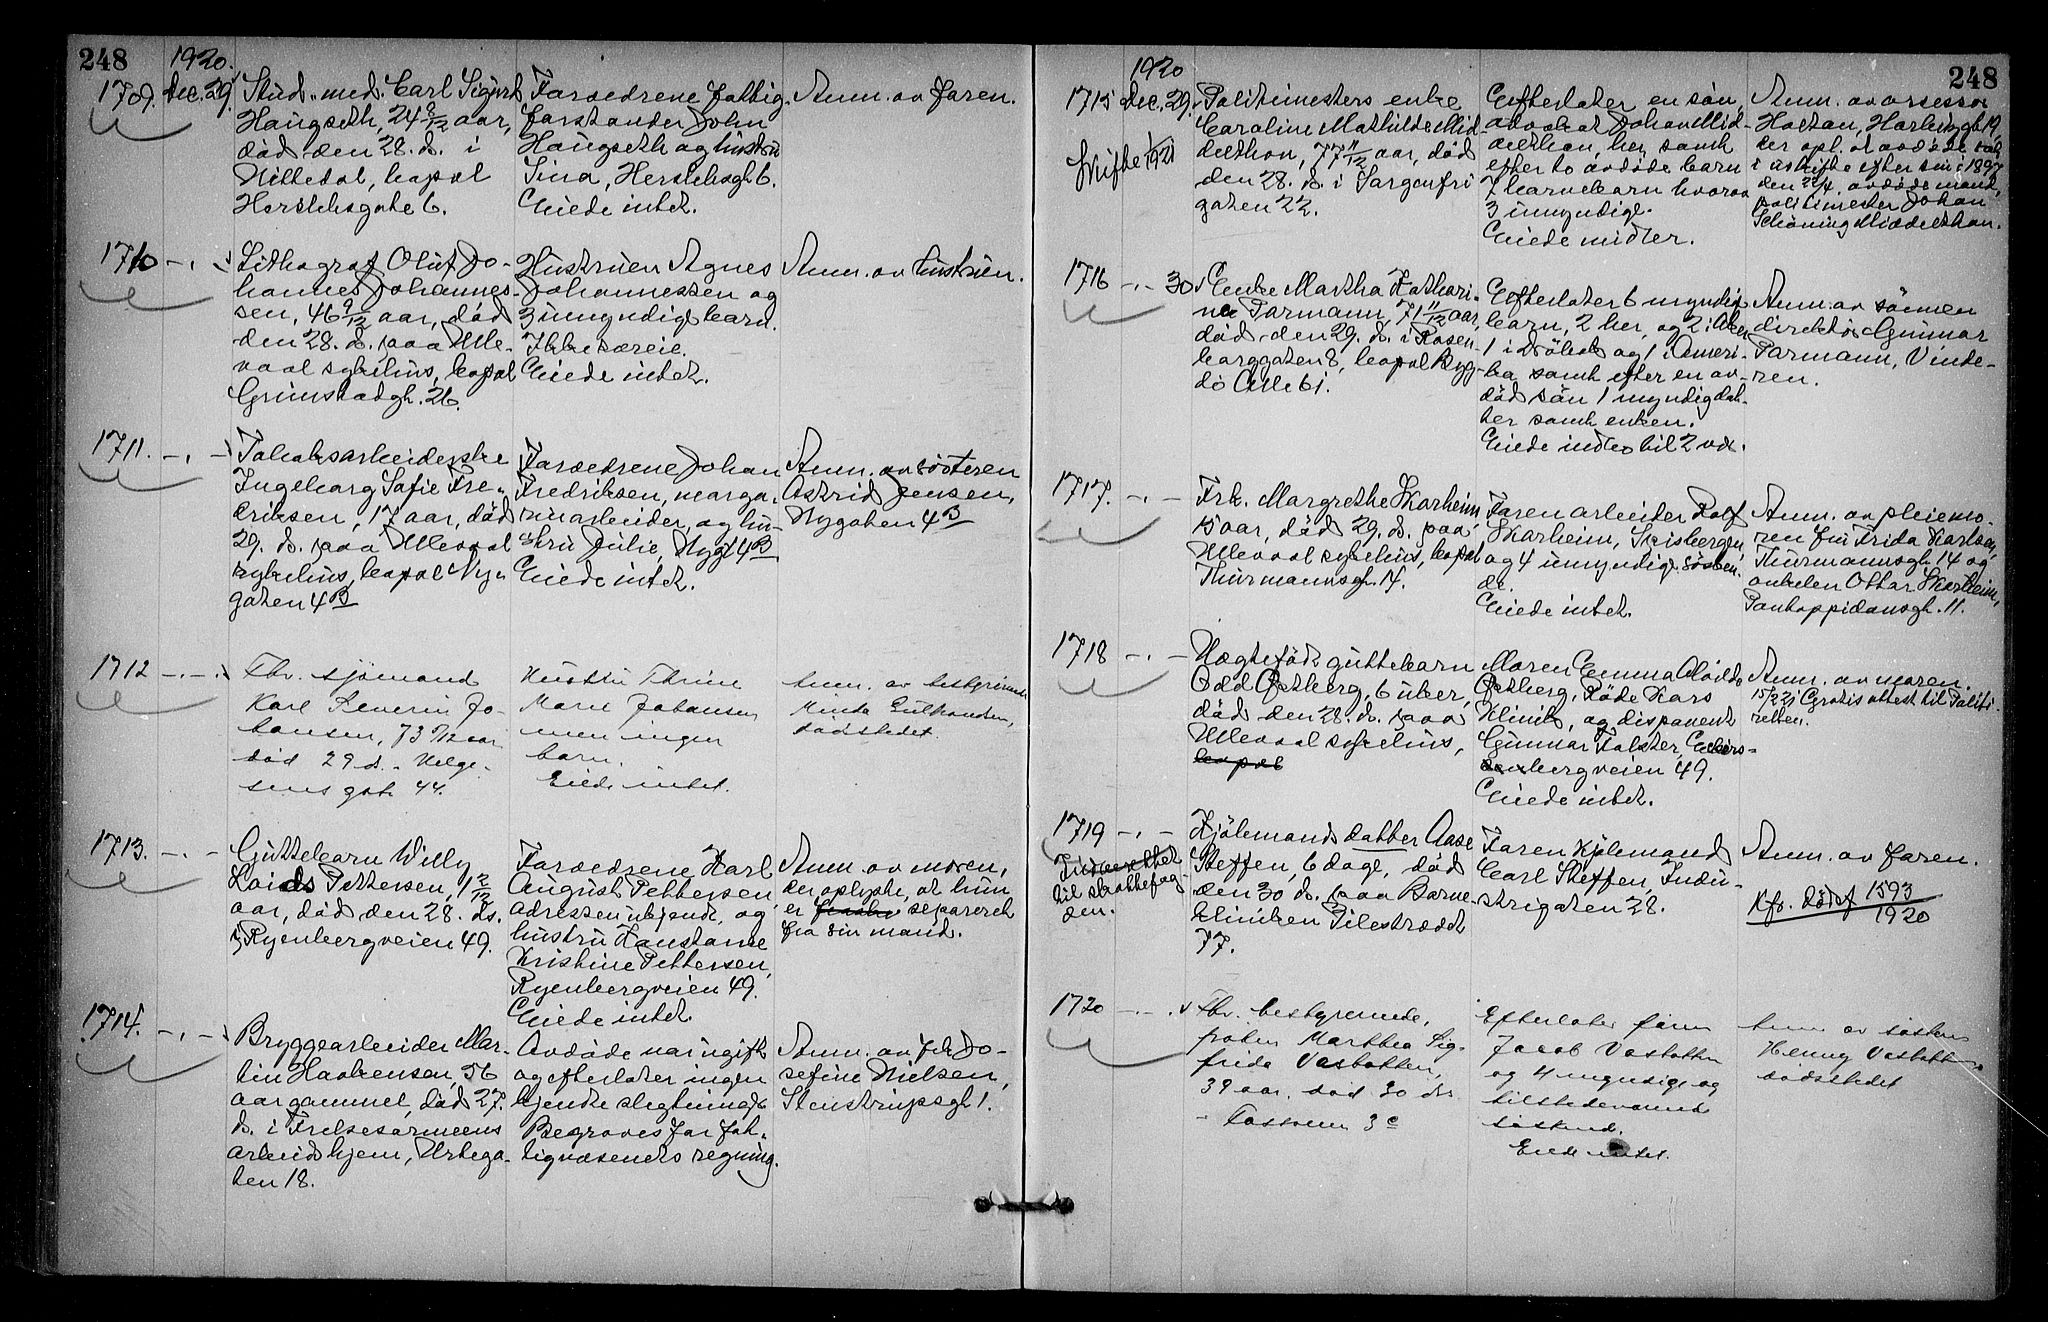 248
1920.
1709. Dec. 29. Stud. med. Carl Sigurd
Haugseth, 24 8/12 aar,
död den 28. ds. i
Nittedal, bopæl
Herslebsgate 6.
Forældrene fattig-
forstander John
Haugseth og hustru
Tina, Herslebsgt. 6.
Eiede intet.
Anm. av faren.
1710 -.- Lithograf Oluf Jo-
hannes Johannes-
sen, 46 9/12 aar, död
den 28. ds. paa Ulle-
vaal sykehus, bopæl
Grimstadgt. 26.
Hustruen Agnes
Johannessen og
3 umyndige barn.
Ikke særeie.
Eiede intet.
Anm. av hustruen.
1711. -.- Tobaksarbeiderske
Ingeborg Sofie Fre-
driksen, 17 aar, död
29. ds. paa Ullevaal
sykehus, bopæl Ny-
gaten 4B
Forældrene Johan
Fredriksen, marga-
rinarbeider, og hu-
stru Julie, Nygt 4B
Eiede intet.
Anm. av søsteren
Astrid Jensen,
Nygaten 4B
1712 -.- Fhv. sjømand
Karl Severin Jo-
hansen, 73 7/12 aar
död 29 ds. - Helge-
sens gate 44.
Hustru Thrine
Marie Johansen
men ingen
barn.
Eiede intet.
Anm. av bestyrerinde
Minda Gulbrandsen,
dödsstedet.
1713. -.- Guttebarn Willy
Pettersen, 1 2/12
aar, död den 28. ds.
i Ryenbergveien 49.
Forældrene Karl
August Pettersen,
adressen ukjendt, og
hustru Konstanse
Kristine Pettersen,
Ryenbergveien 49.
Eiede intet.
Anm. av moren,
der oplyste, at hun
er separeret
fra sin mand.
1714. -.- Bryggearbeider Mar-
tin Haakensen, 56
aar gammel, död 27.
ds. i Frelsesarmeens
arbeidshjem, Urtega-
ten 18.
Avdöde var ugift
og efterlater ingen
kjendte slegtninge
Begraves for fat-
tigvæsenets regning.
Anm. av frk Jo-
sefine Nielsen,
Stenstrupsgt 1.
248
1920
1715 Dec. 29. Politimesters enke
Caroline Mathilde Mid-
delthon, 77 11/12 aar, död
den 28. ds. i Sorgenfri
gaten 22.
Skifte 1/1921
Efterlater en sön,
advokat Johan Mid-
delthon, her, samt
efter to avdöde barn
7 barnebarn hvorav
3 umyndige.
Eiede midler.
Anm. av assessor
Hoctan, Harbitzgt. 19,
der opl. at avdöde sat
i uskifte efter sin i 1897
den 24/4. avdöde mand,
politimester Johan
Schöning Middelthon.
1716 -.- 30 Enke Martha Kathari-
ne Parmann, 71 11/12 aar,
död den 29. ds. i Rosen-
borggaten 8, bopæl Byg-
dö Alle 61.
Efterlater 6 myndige
barn, 2 her, og 2 i Aker
1 i Dröbak og 1 i Ameri-
ka samt efter en av-
död sön 1 myndig dat-
ter samt enken.
Eiede indbo til 2 vdl.
Anm. av sönnen
direktör Gunnar
Parmann, Vinde-
ren.
1717. -.- Frk. Margrethe Skarheim
15 aar, död 29. ds. paa
Ullevaal sykehus, bopæl
Thurmannsgt. 14.
Faren arbeider Rolf
Skarheim, Spitsbergen,
og 4 umyndige sösken-
de.
Eiede intet.
Anm. av pleiemo-
ren fru Frida Karlsen,
Thurmannsgt. 14 og
onkelen Ottar Skarheim,
Pontoppidansgt. 11.
1718 -.- Uægtefödt guttebarn
Odd Östberg, 6 uker,
död den 28. ds. paa
Ullevaal sykehus,
bopæl
Moren Emma Alvilde
Östberg, Röde Kors
Klinik, og disponent
Gunnar Falster, Ekebers-
bergveien 49.
Eiede intet.
Anm. av moren.
15/2 21 Gratis attest til Politi-
retten.
1719 -.- Kjölemands datter Aase
Steffen, 6 dage, död
den 30 ds. paa Barne-
kliniken Pilestrædet
77.
Indberettet
til skattefog-
den.
Faren kjölemand
Carl Steffen, Indu-
strigaten 28.
Anm. av faren.
Kfr. dödsf 1593/1920
1720 -.- Fhv. bestyrerinde,
fröken Marthea Sig-
frida Vasbotten,
39 aar, död 30 ds.
- Toftveien 3 c
Efterlater faren
Jacob Vasbotten
og 4 myndige og
tilstedeværende
söskend.
Eiede intet.
Anm. av søsteren
Henny Vasbotten
dödsstedet